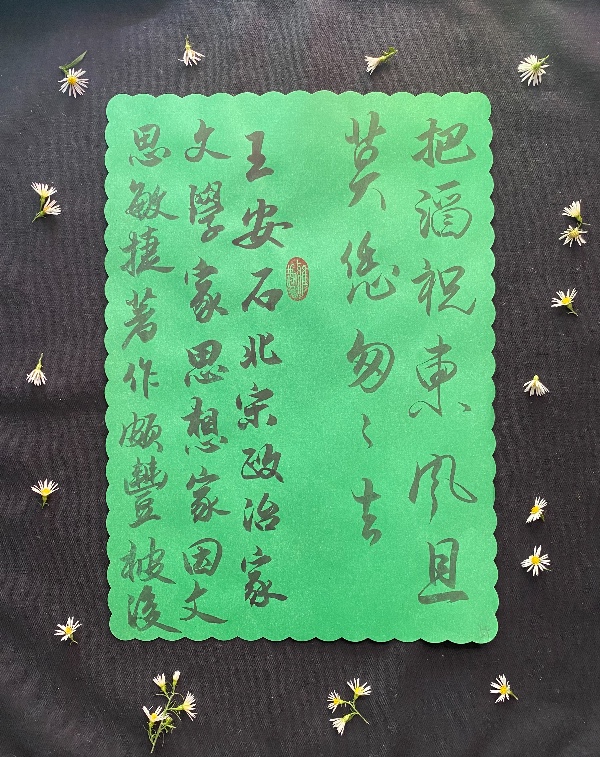 把酒祝東風且
莫恁匆〻去
王安石北宋政治家
文學家思想家因文
思敏捷著作頗豐被後